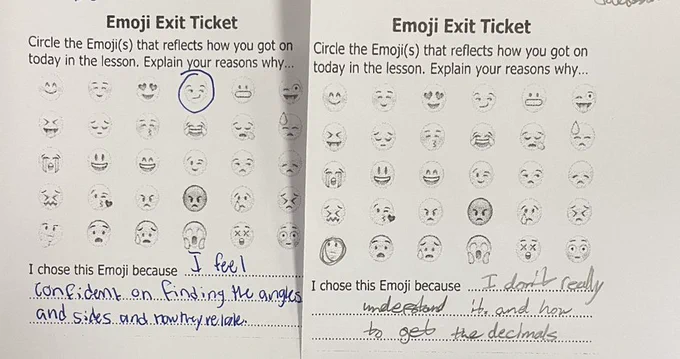 Emoji Exit Ticket
Circle the Emoji(s) that reflects how you got on
today in the lesson. Explain your reasons why...
I chose this Emoji because I feel
confident on finding the angles
and sides and how they relate.
Emoji Exit Ticket
Circle the Emoji(s) that reflects how you got on
today in the lesson. Explain your reasons why...
I chose this Emoji because I don't really
understand it. and how
to get the decimals